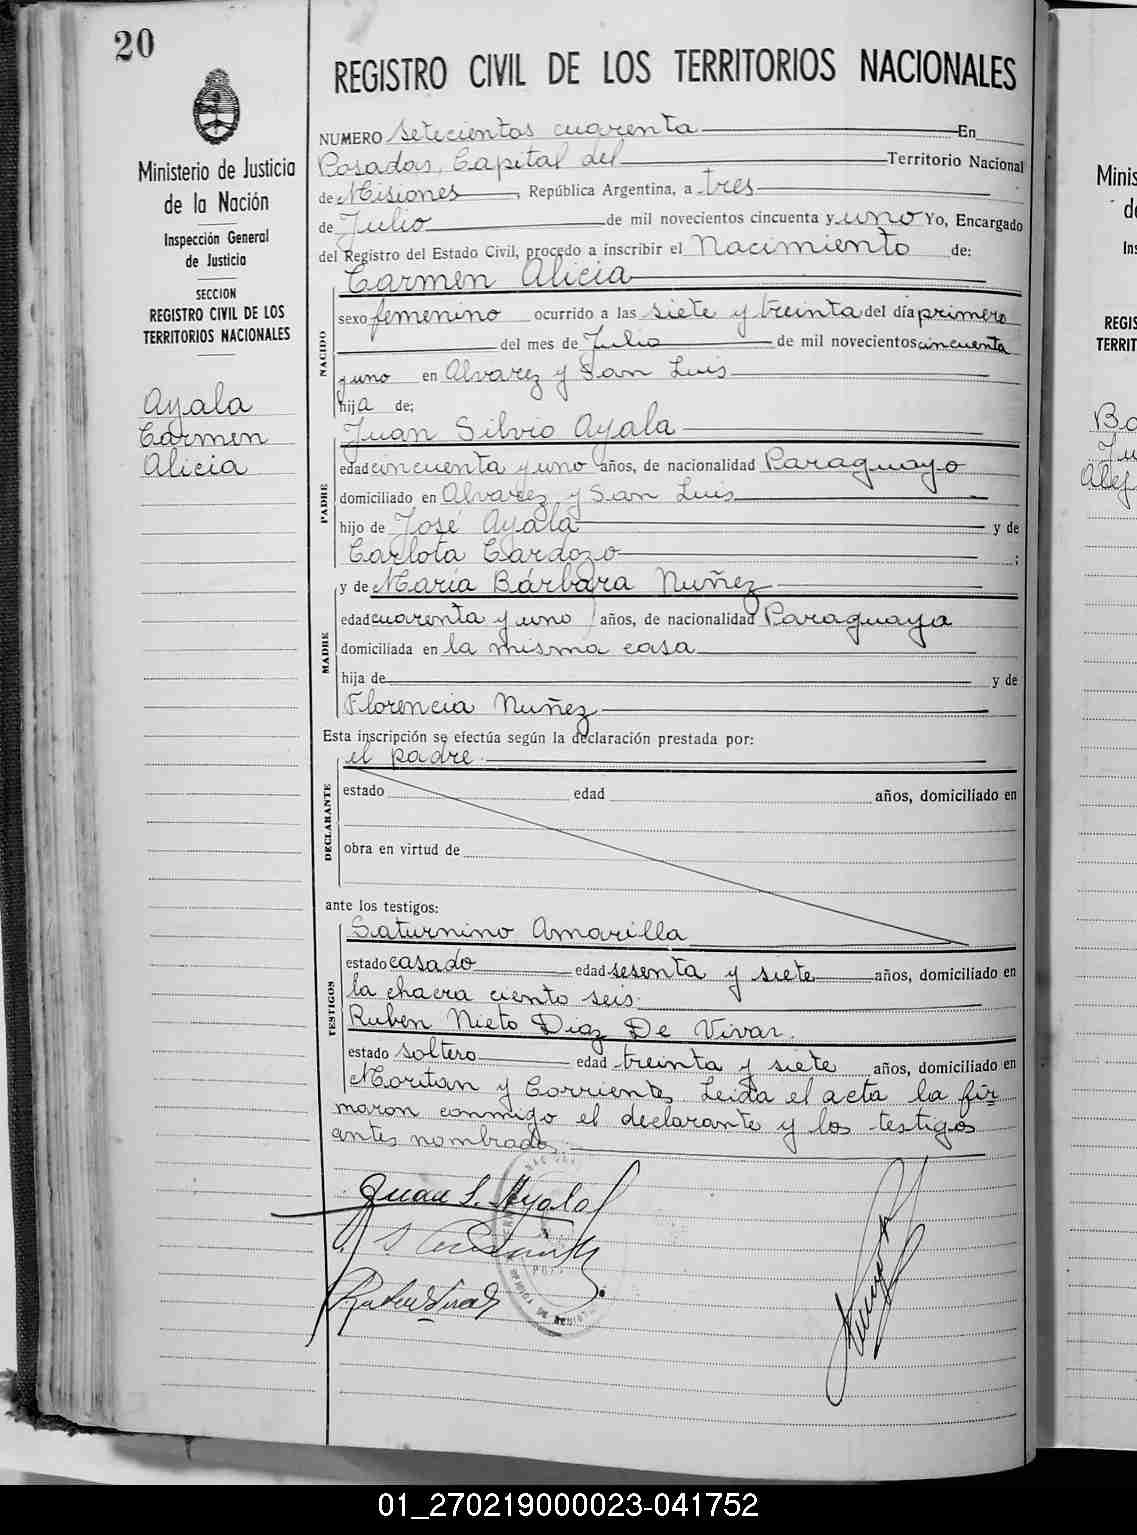 20
Ministerio de Justicia
de la Nación
Inspección General
de Justicia
SECCION
REGISTRO CIVIL DE LOS
TERRITORIOS NACIONALES
Ayala
Carmen
Alicia
REGISTRO CIVIL DE LOS TERRITORIOS NACIONALES
NUMERO setecientos cuarenta En
Posadas, Capital del Territorio Nacional
de Misiones, República Argentina, a tres
de Julio de mil novecientos cincuenta y uno Yo, Encargado
del Registro del Estado Civil, procedo a inscribir el Nacimiento de:
Carmen Alicia
NACIDO
sexo femenino ocurrido a las siete y treinta del día primero
del mes de Julio de mil novecientos cincuenta
y uno en Alvarez y San Luis
hija de:
Juan Silvio Ayala
PADRE
edad cincuenta y uno años, de nacionalidad Paraguayo
domiciliado en Alvarez y San Luis
hijo de José Ayala y de
Carlota Cardozo;
y de María Bárbara Nuñez
MADRE
edad cuarenta y uno años, de nacionalidad Paraguaya
domiciliada en la misma casa
hija de y de
Florencia Nuñez
Esta inscripción se efectúa según la declaración prestada por:
el padre
DECLARANTE
estado edad años, domiciliado en
obra en virtud de
ante los testigos:
Saturnino Amarilla
TESTIGOS
estado casado edad sesenta y siete años, domiciliado en
la chacra ciento seis.
Ruben Nieto Diaz De Vivar.
estado soltero edad treinta y siete años, domiciliado en
Moritan y Corrientes Leida el acta la fir
maron conmigo el declarante y los testigos
antes nombrados.
Juan S. Ayala
Minis
de
Ins
REGIS
TERRIT
Ba
Ju
Alej
01_270219000023-041752